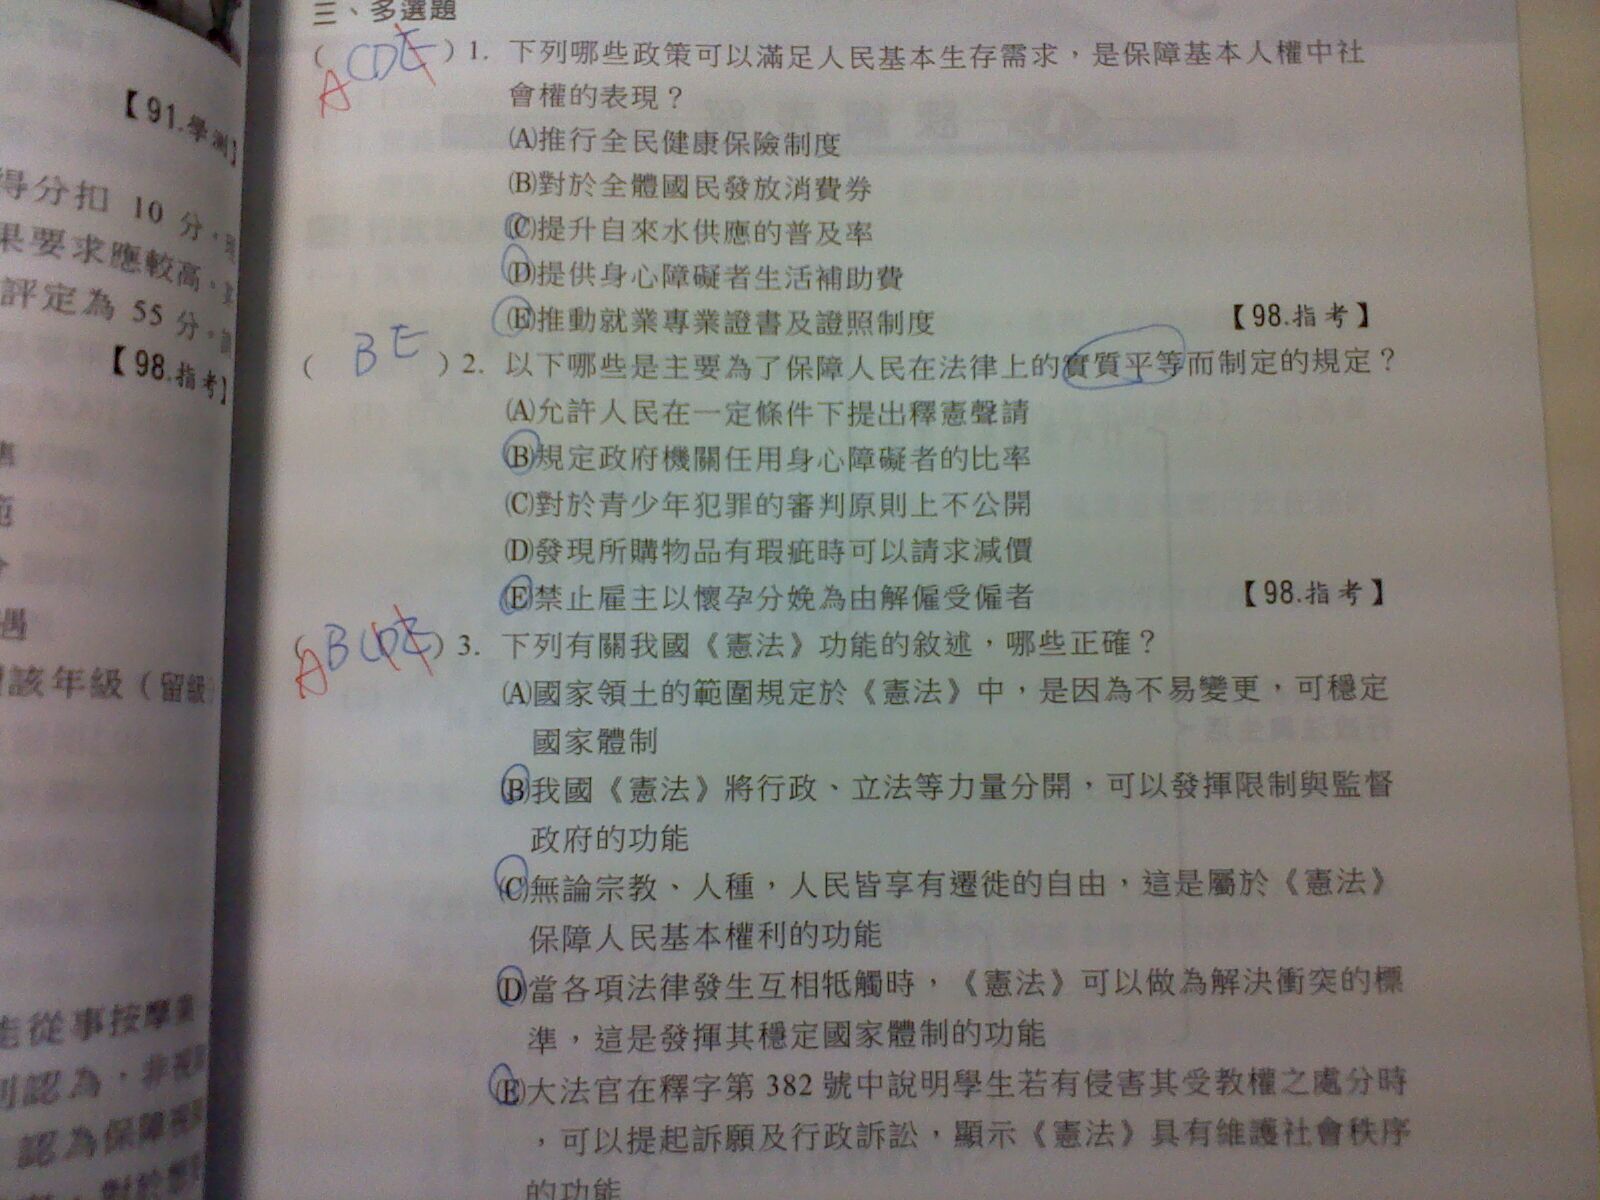 【91.學測】
得分扣 10 分,
果要求應較高,
評定為 55 分,
【98.指考】
該年級（留級
能從事按摩業
認為,非視
認為保障視
三、多選題
( A CDE ) 1. 下列哪些政策可以滿足人民基本生存需求,是保障基本人權中社
會權的表現？
(A)推行全民健康保險制度
(B)對於全體國民發放消費券
(C)提升自來水供應的普及率
(D)提供身心障礙者生活補助費
(E)推動就業專業證書及證照制度 【98.指考】
( BE ) 2. 以下哪些是主要為了保障人民在法律上的實質平等而制定的規定？
(A)允許人民在一定條件下提出釋憲聲請
(B)規定政府機關任用身心障礙者的比率
(C)對於青少年犯罪的審判原則上不公開
(D)發現所購物品有瑕疵時可以請求減價
(E)禁止雇主以懷孕分娩為由解僱受僱者 【98.指考】
( A BCDE ) 3. 下列有關我國《憲法》功能的敘述,哪些正確？
(A)國家領土的範圍規定於《憲法》中,是因為不易變更,可穩定
國家體制
(B)我國《憲法》將行政、立法等力量分開,可以發揮限制與監督
政府的功能
(C)無論宗教、人種,人民皆享有遷徙的自由,這是屬於《憲法》
保障人民基本權利的功能
(D)當各項法律發生互相牴觸時,《憲法》可以做為解決衝突的標
準,這是發揮其穩定國家體制的功能
(E)大法官在釋字第 382 號中說明學生若有侵害其受教權之處分時
,可以提起訴願及行政訴訟,顯示《憲法》具有維護社會秩序
的功能